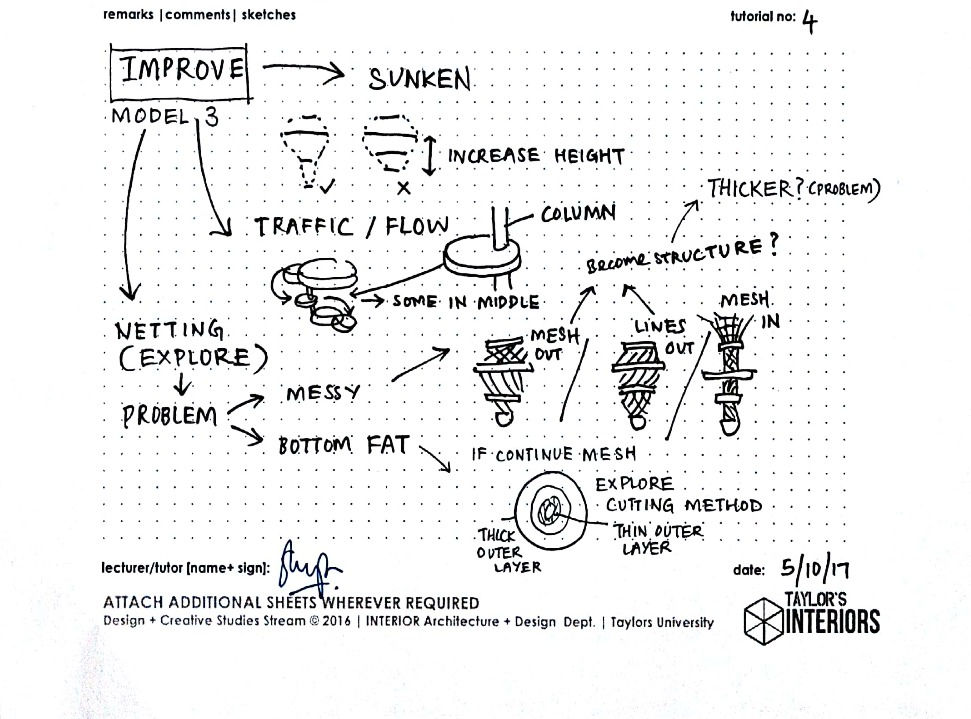 remarks | comments | sketches
tutorial no: 4
IMPROVE
SUNKEN
MODEL 3
INCREASE HEIGHT
THICKER? (PROBLEM)
COLUMN
TRAFFIC / FLOW
Become STRUCTURE?
SOME IN MIDDLE
MESH
IN
NETTING
(EXPLORE)
MESH
OUT
LINES
OUT
PROBLEM
MESSY
BOTTOM FAT
IF CONTINUE MESH
EXPLORE
CUTTING METHOD
THICK
OUTER
LAYER
THIN OUTER
LAYER
lecturer/tutor [name+ sign]:
date: 5/10/17
ATTACH ADDITIONAL SHEETS WHEREVER REQUIRED
Design + Creative Studies Stream © 2016 | INTERIOR Architecture + Design Dept. | Taylors University
TAYLOR'S
INTERIORS